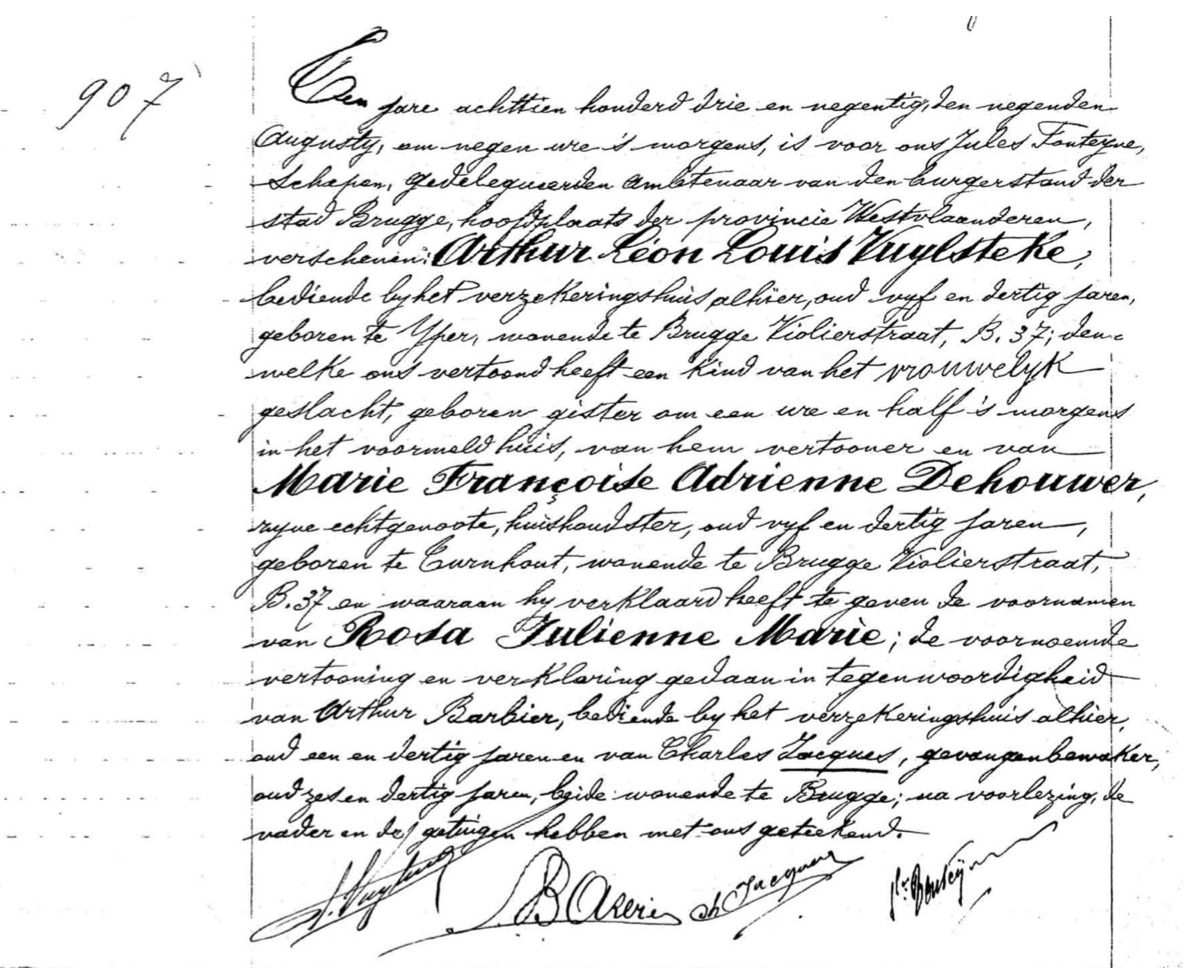 907
Ten jare achttien honderd drie en negentig, den negenden
Augusty, om negen ure 's morgens, is voor ons Jules Fonteyne,
Schepen, gedelegueerden ambtenaar van den burgerstand der
stad Brugge, hoofdplaats der provincie Westvlaanderen,
verschenen: Arthur Léon Louis Vuylsteke,
bediende by het verzekeringshuis alhier, oud vyf en dertig jaren,
geboren te Yper, wonende te Brugge Violierstraat, B. 37; den-
welke ons vertoond heeft een kind van het vrouwelyk
geslacht, geboren gister om een ure en half 's morgens
in het voormeld huis, van hem vertooner en van
Marie Françoise Adrienne Dehouwer,
zyne echtgenoote, huishoudster, oud vyf en dertig jaren,
geboren te Turnhout, wonende te Brugge Violierstraat,
B. 37 en waaraan hy verklaard heeft te geven de voornamen
van Rosa Julienne Marie; de voornoemde
vertooning en verklaring gedaan in tegenwoordigheid
van Arthur Barbier, bediende by het verzekeringshuis alhier,
oud een en dertig jaren en van Charles Jacques, gevangenbewaker,
oud zes en dertig jaren, beide wonende te Brugge; na voorlezing, de
vader en de getuigen hebben met ons geteekend.
ch Jacques